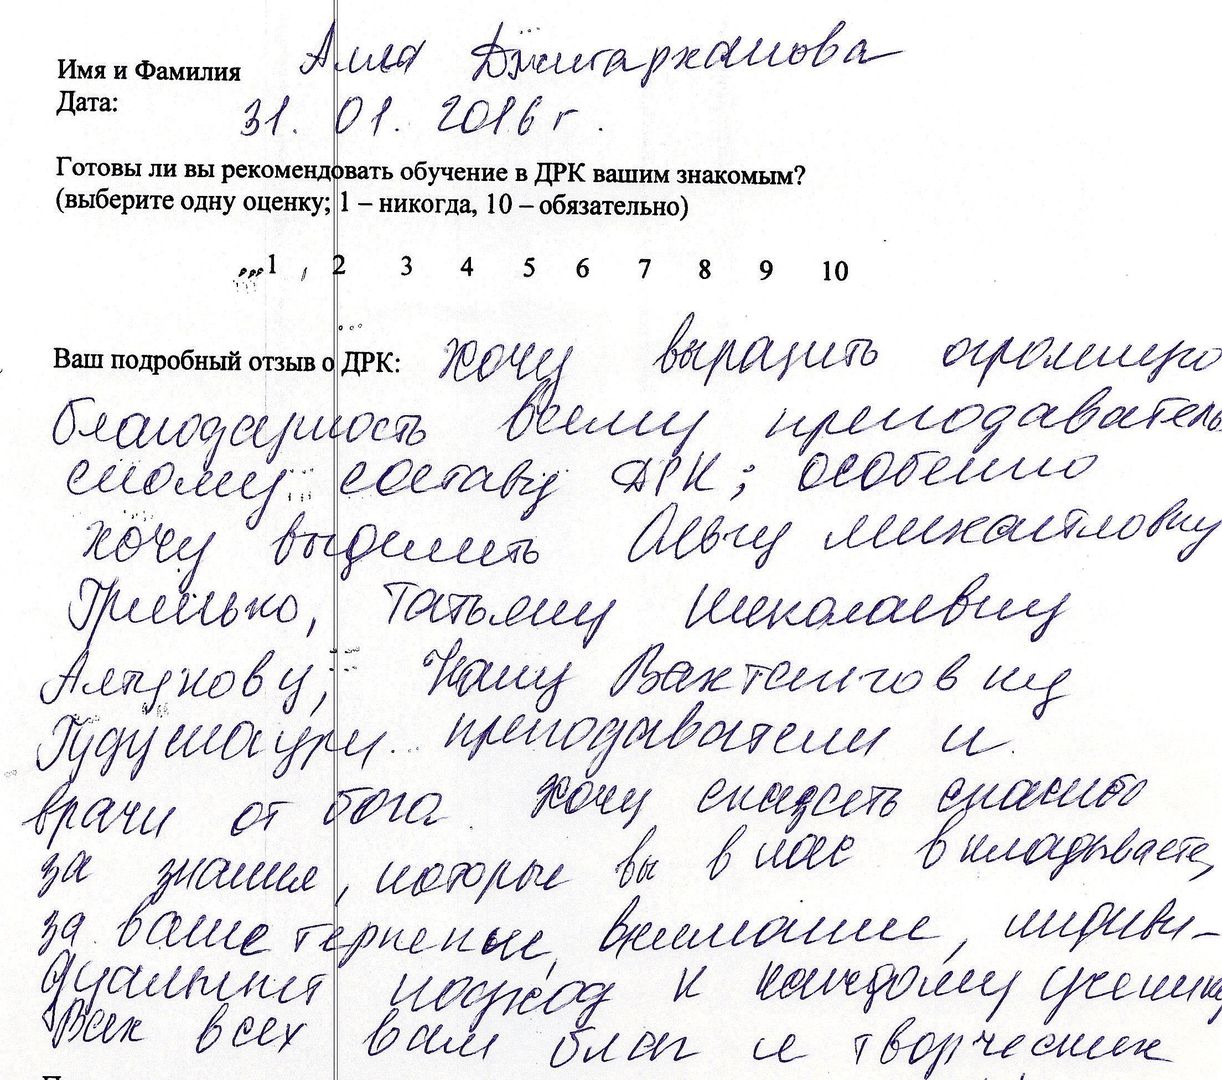 Имя и Фамилия Алла Джитарханова
Дата: 31. 01. 2016 г.
Готовы ли вы рекомендовать обучение в ДРК вашим знакомым?
(выберите одну оценку; 1 – никогда, 10 – обязательно)
1 2 3 4 5 6 7 8 9 10
Ваш подробный отзыв о ДРК: Хочу выразить огромную
благодарность всему преподаватель
скому составу ДРК; особенно
хочу выделить Ольгу Михайловну
Гринько, Татьяну Николаевну
Алпунову, Нану Вахтанговну
Гудушаури преподаватели и
врачи от бога. Хочу сказать спасибо
за знания, которые вы в нас вкладываете,
за ваше терпение, внимание, индиви-
дуальный подход к каждому ученику
Вам всех вам благ и творческих